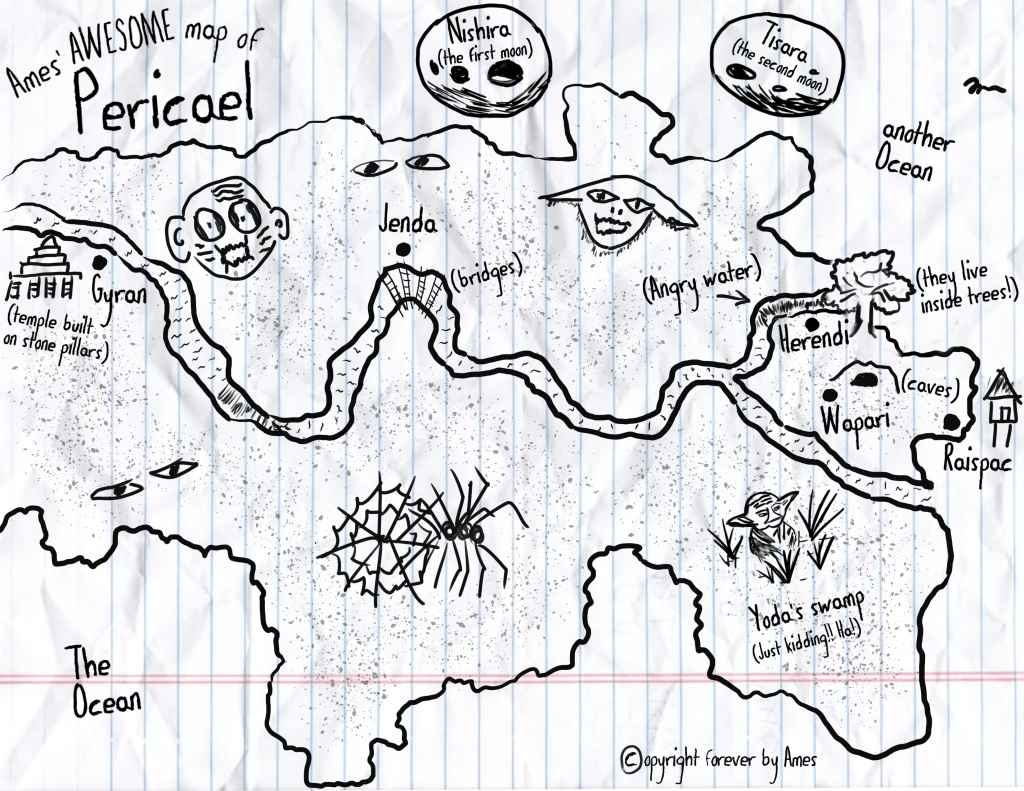 Ames' AWESOME map of
Pericael
Nishira
(the first moon)
Tisara
(the second moon)
another
Ocean
Jenda
(bridges)
Gyran
(temple built
on stone pillars)
(Angry water)
(they live
inside trees!)
Herendi
(caves)
Wapari
Raispac
Yoda's swamp
(Just kidding!! Ha!)
The
Ocean
©opyright forever by Ames